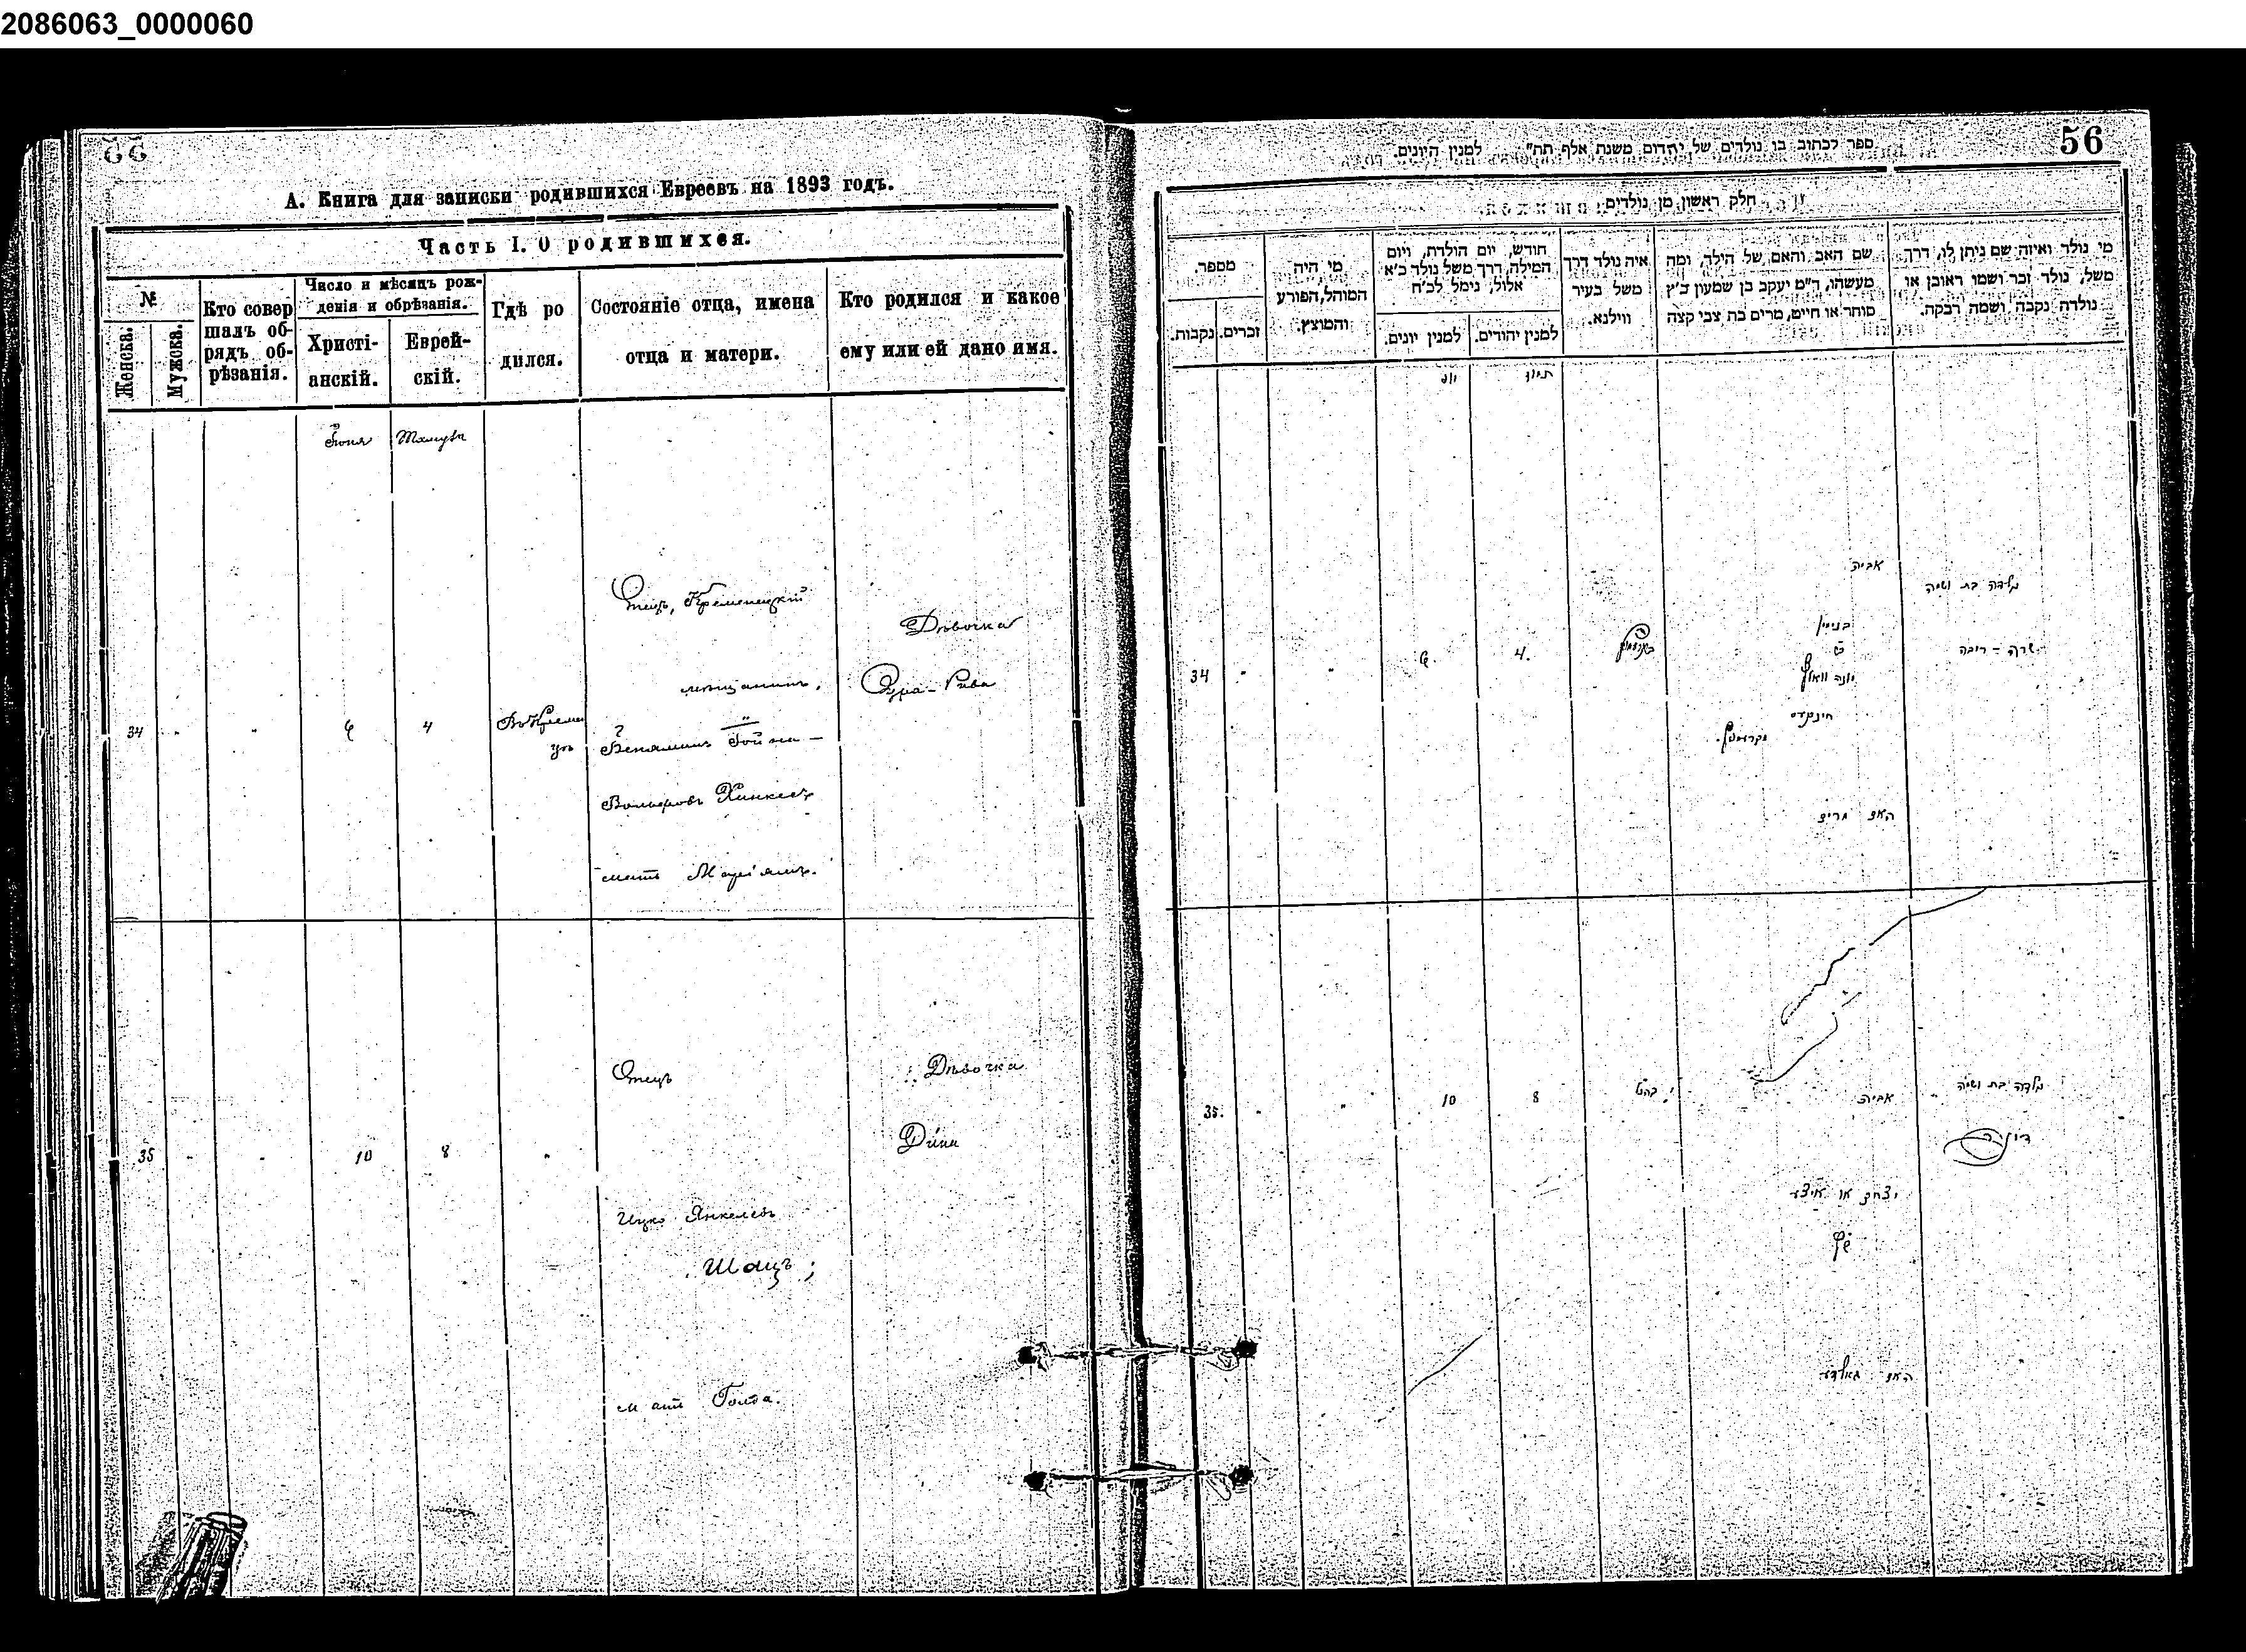 2086063_0000060
А. Книга для записки родившихся Евреевъ на 1893 годъ.
Часть I. О родившихся.
№
Женска.
Мужска.
Кто совер
шалъ об-
рядъ об-
рѣзанія.
Число и мѣсяцъ рож-
денія и обрѣзанія.
Христі-
анскій.
Еврей-
скій.
Гдѣ ро
дился.
Состояніе отца, имена
отца и матери.
Кто родился и какое
ему или ей дано имя.
Іюня
Тамуза
34
6
4
Въ Кременцѣ
Отецъ, Кременецкій
мѣщанинъ,
Веніаминъ Іойна-
Вольфовъ Хинкесъ
мать Маріямъ.
Дѣвочка
Сура-Рива
35
10
8
Отецъ
Ицко Янкелевъ
Шацъ;
мать Голда.
Дѣвочка
Дина
56
ספר לכתוב בו נולדים של יהודים משנת אלף תת" למנין היונים.
חלק ראשון מן נולדים
מספר.
זכרים.
נקבות.
מי היה
המוהל,הפורע
והמוצץ.
חודש, יום הולדת, ויום
המילה, דרך משל נולד כ'א
אלול, נימל לכ'ח
למנין יונים.
למנין יהודים.
איה נולד דרך
משל בעיר
ווילנא.
שם האב והאם של הילד, ומה
מעשהו, ד"מ יעקב בן שמעון כ'ץ
סוחר או חייט, מרים בת צבי קצה
מי נולד ואיזה שם ניתן לו, דרך
משל, נולד זכר ושמו ראובן או
נולדה נקבה ושמה רבקה.
יוני
תמוז
34
6.
4.
אביה
בנימין
יונה וואלף
חינקעס
האם מרים
נולדה בת ושמה
שרה - ריבה
35.
10
8
אביה
יצחק או איצע
האם גאלדע
נולדה בת ושמה
דינה